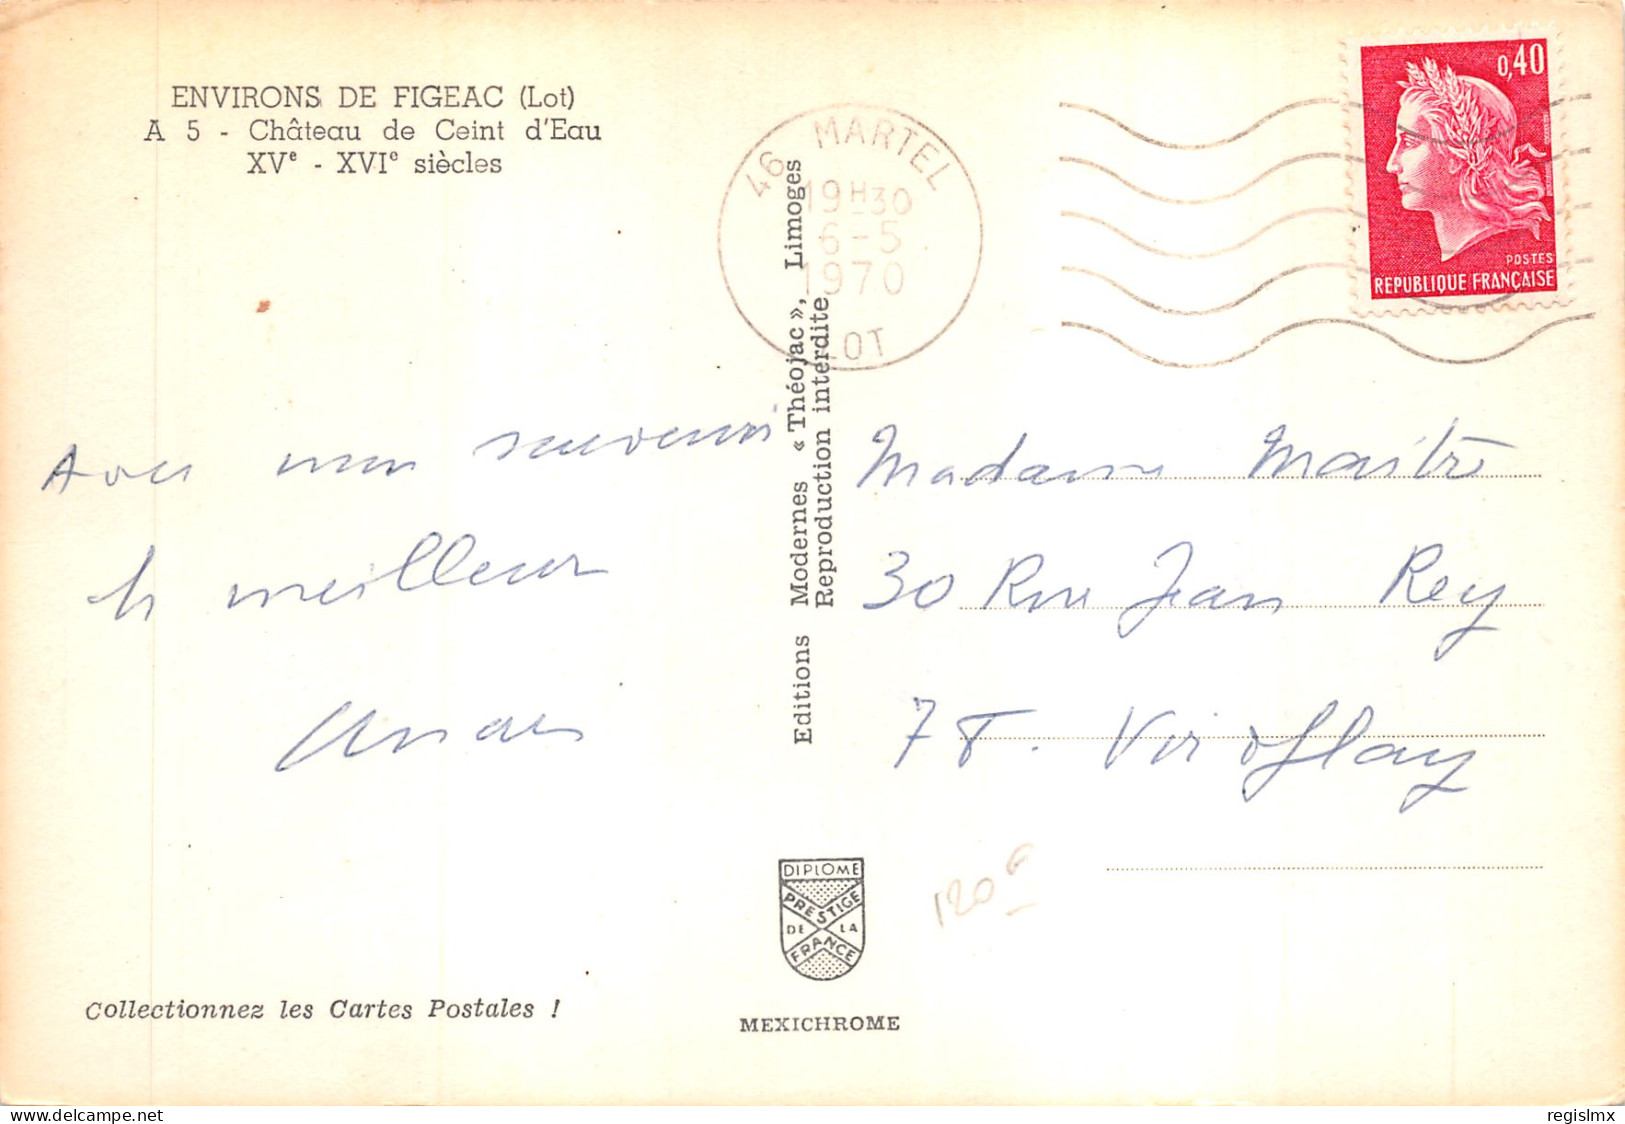 ENVIRONS DE FIGEAC (Lot)
A 5 - Château de Ceint d'Eau
XVe - XVIe siècles
46 MARTEL
19H30
6-5
1970
LOT
0,40
POSTES
REPUBLIQUE FRANÇAISE
Avec mon souvenir
le meilleur
Editions Modernes « Théojac », Limoges
Reproduction interdite
Madame Maitre
30 Rue Jean Rey
78. Viroflay
120F
DIPLOME
PRESTIGE
DE LA
FRANCE
Collectionnez les Cartes Postales !
MEXICHROME
delcampe.net
regislmx